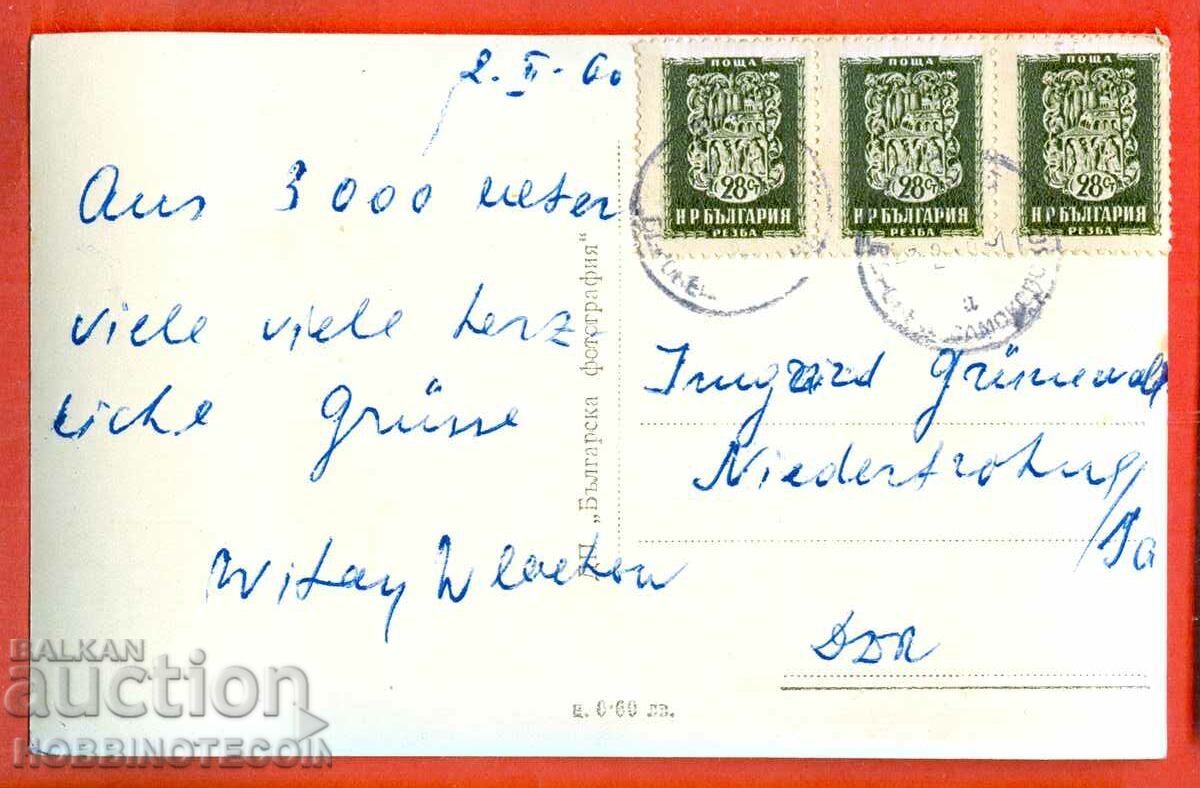 2. II. 60
Aus 3000 Meter
viele viele herz-
liche Grüsse
ПОЩА
28 СТ
Н Р БЪЛГАРИЯ
РЕЗБА
ПОЩА
28 СТ
Н Р БЪЛГАРИЯ
РЕЗБА
ПОЩА
28 СТ
Н Р БЪЛГАРИЯ
РЕЗБА
ДП „Българска фотография“
Ingrid Grünewald
/Sa
DDR
ц. 0·60 лв.
BALKAN
auction
HOBBINOTECOIN